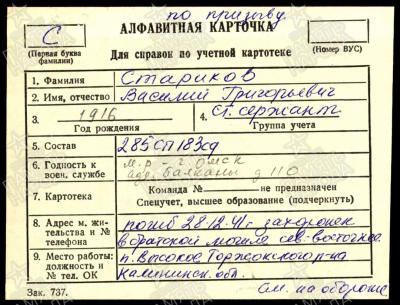 по призыву
С
АЛФАВИТНАЯ КАРТОЧКА
(Первая буква фамилии)
Для справок по учетной картотеке
(Номер ВУС)
1. Фамилия Стариков
2. Имя, отчество Василий Григорьевич
3. 1916 4. Ст. сержант
Год рождения Группа учета
5. Состав 285 СП 183 сд
6. Годность к воен. службе м.р - г. Омск
адр. Балканы д 110
7. Картотека Команда № — не предназначен
Спецучет, высшее образование (подчеркнуть)
8. Адрес м. жительства и № телефона погиб 28.12.41г захоронен
в братской могиле сев-восточнее
9. Место работы: должность и № тел. ОК п. Высокое, Торжокского р-на
Калининск. обл.
Зак. 737.
См. на обороте